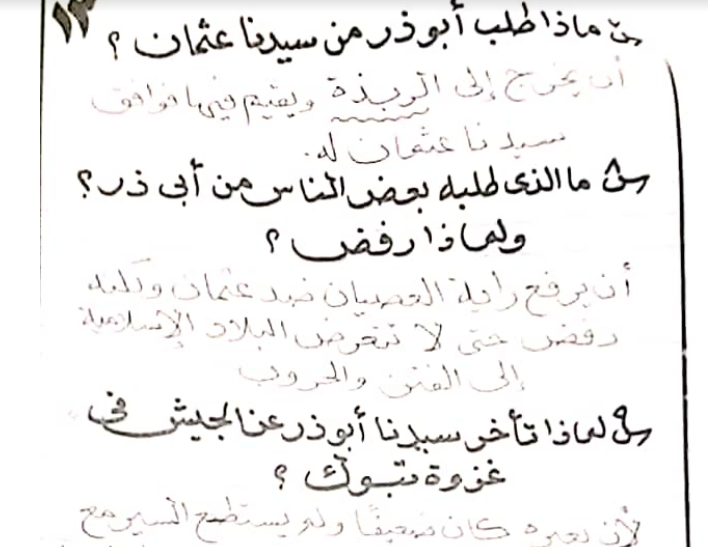 ١٣
س ماذا طلب أبو ذر من سيدنا عثمان ؟
أن يخرج إلى الربذة ويقيم فيها فوافق
سيدنا عثمان له.
س ما الذى طلبه بعض الناس من أبى ذر ؟
ولماذا رفض ؟
أن يرفع راية العصيان ضد عثمان ولكنه
رفض حتى لا تتعرض البلاد الإسلامية
إلى الفتن والحروب
س لماذا تأخر سيدنا أبو ذر عن الجيش فى
غزوة تبوك ؟
لأن بعيره كان ضعيفًا ولم يستطع السير مع